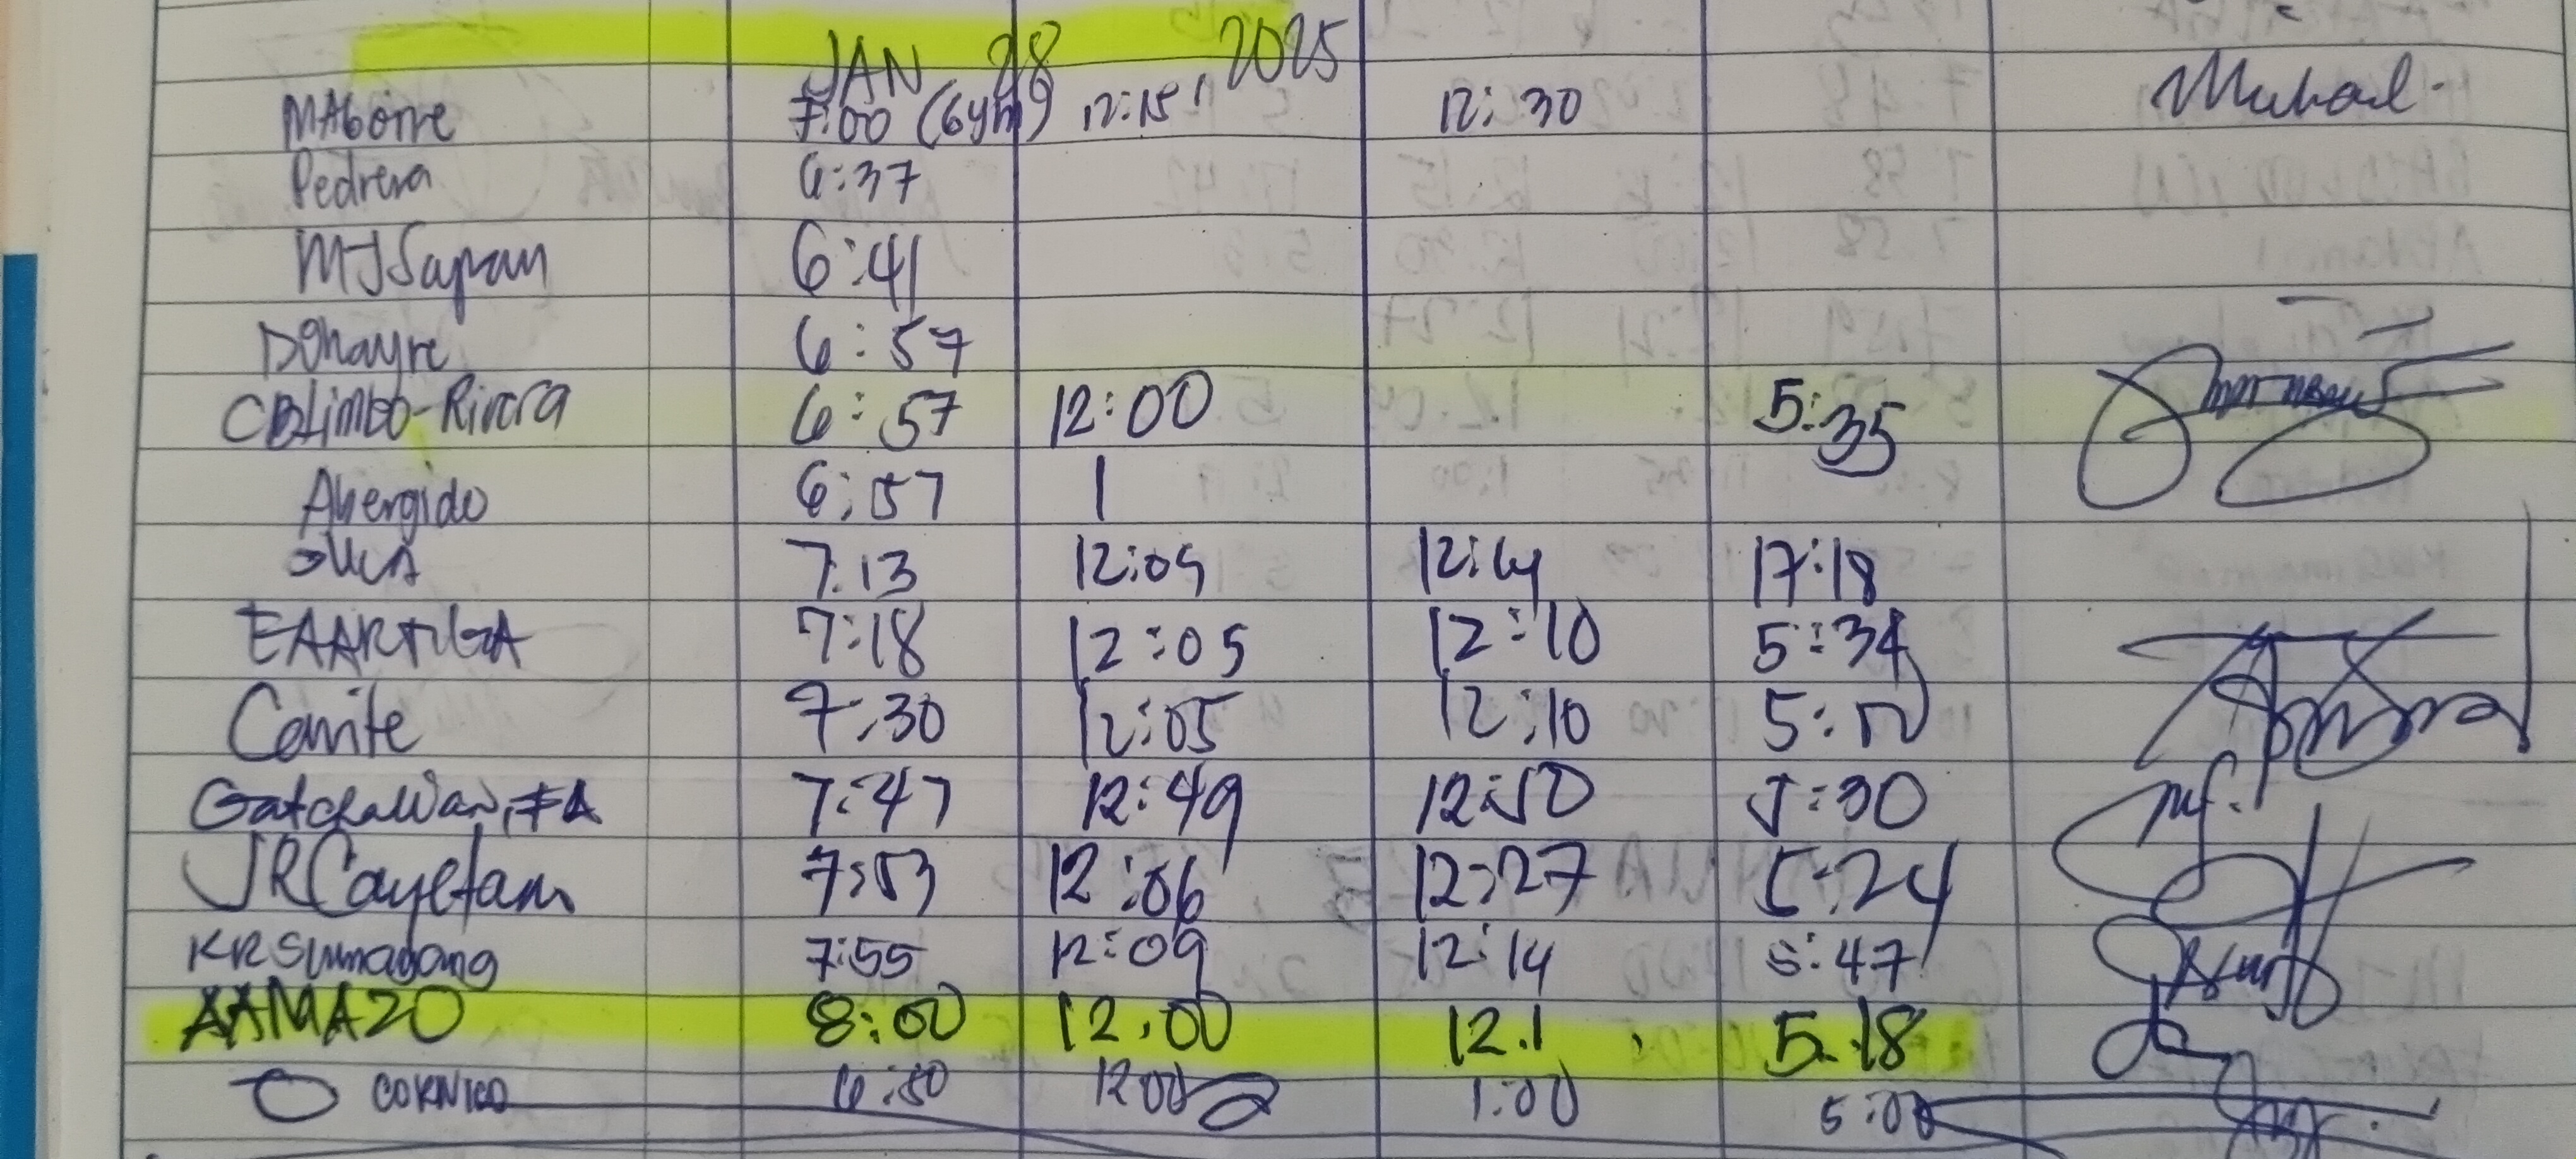 JAN 28, 2025
7:00 (Gym) 12:15 12:30
Pedrera 6:37
MJSapan 6:41
6:57
CBLimbo-Rivera 6:57 12:00 5:35
Abergido 6:57 1
7:13 12:09 12:14 17:18
EAARTIGA 7:18 12:05 12:10 5:34
Canite 7:30 12:05 12:10 5:50
Gatchalian, FA 7:47 12:49 12:50 5:30
JRCayetano 7:53 12:06 12:27 5:24
KRSumadang 7:55 12:09 12:14 5:47
AAMAZO 8:00 12.00 12.1 5.18
CORNICO 6:50 1200 1:00 5:00